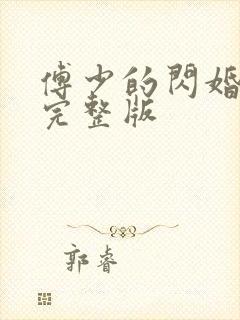 傅少的閃婚
完整版
郭睿